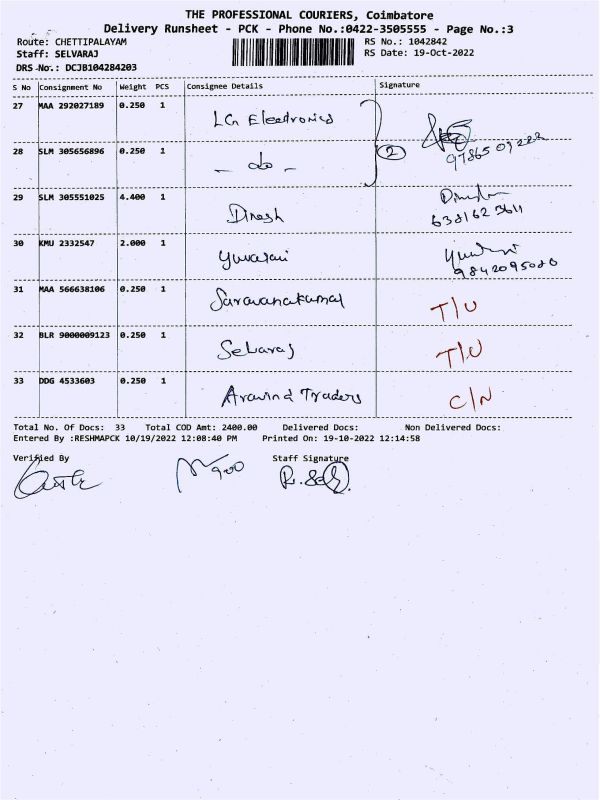 THE PROFESSIONAL COURIERS, Coimbatore
Delivery Runsheet - PCK - Phone No.:0422-3505555 - Page No.:3
Route: CHETTIPALAYAM RS No.: 1042842
Staff: SELVARAJ RS Date: 19-Oct-2022
DRS No.: DCJB104284203
S No Consignment No Weight PCS Consignee Details Signature
27 MAA 292027189 0.250 1 LG Electronics
28 SLM 305656896 0.250 1 - do - 2
29 SLM 305551025 4.400 1 Dinesh 6381623611
30 KMU 2332547 2.000 1 Yuvarani 9842095080
31 MAA 566638106 0.250 1 Saravanakumar T/U
32 BLR 9000009123 0.250 1 Selvaraj T/U
33 DDG 4533603 0.250 1 Aravind Traders C/N
Total No. Of Docs: 33 Total COD Amt: 2400.00 Delivered Docs: Non Delivered Docs:
Entered By :RESHMAPCK 10/19/2022 12:08:40 PM Printed On: 19-10-2022 12:14:58
Verified By Staff Signature